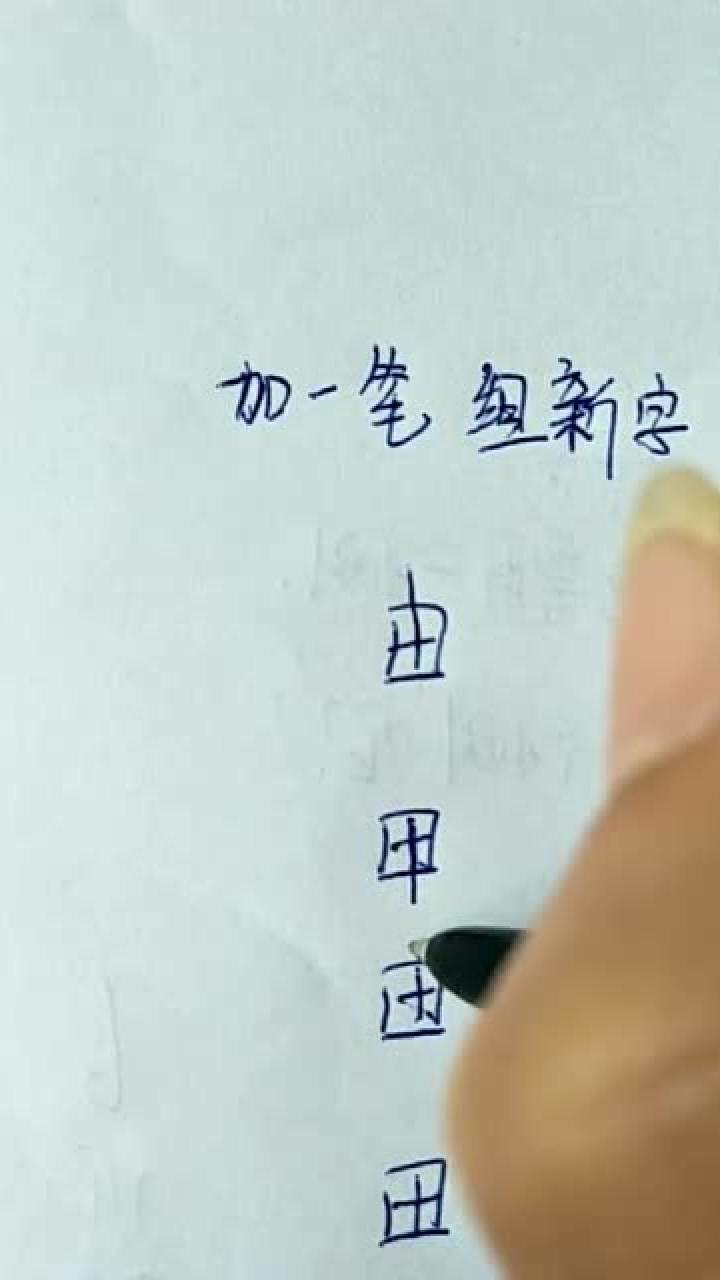 加一笔 组新字
由
甲
田
田